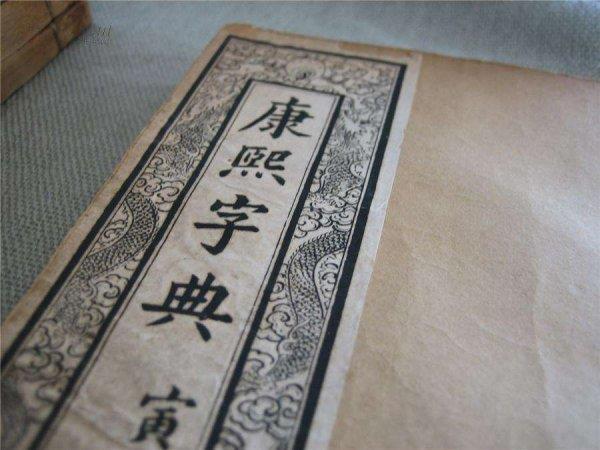 康熙字典
寅